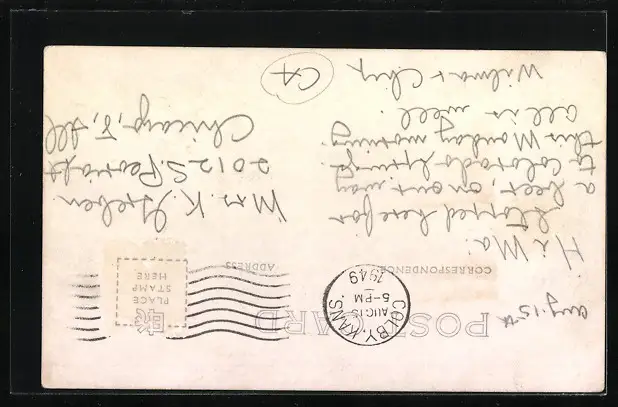 POST CARD
Aug. 15th
COLBY, KANS.
AUG 15
5-PM
1949
PLACE
STAMP
HERE
CORRESPONDENCE
ADDRESS
Hi Ma:
Stopped here for
a beer, on our way
to Colorado Springs.
this Monday morning.
all is well.
Wilma & Chip
Mrs. K.
2012 S.
Chicago, 8, Ill
CA